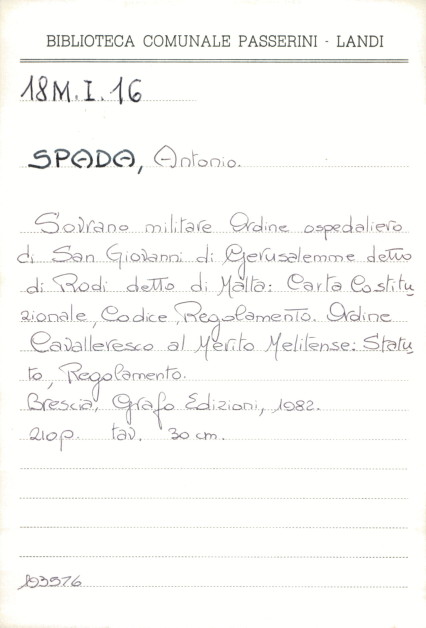 BIBLIOTECA COMUNALE PASSERINI - LANDI
18M.I.16
SPADA, Antonio.
Sovrano militare Ordine ospedaliero
di San Giovanni di Gerusalemme detto
di Rodi detto di Malta: Carta Costitu_
zionale, Codice, Regolamento. Ordine
Cavalleresco al Merito Melitense: Statu_
to, Regolamento.
Brescia, Grafo Edizioni, 1982.
210p. tav. 30 cm.
193976